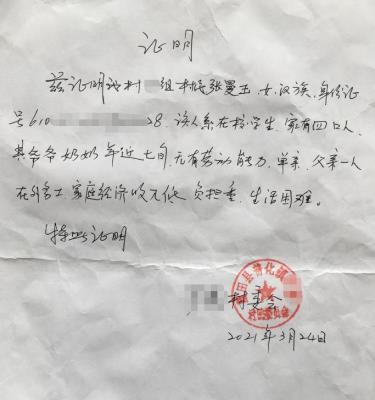 证明
兹证明我村 组村民张曼玉,女,汉族,身份证
号610 28。该人系在校学生,家有四口人,
其爷爷奶奶年近七旬,无有劳动能力,单亲,父亲一人
在外务工,家庭经济收入低,负担重,生活困难。
特此证明
田县 化镇
村委会
2021年3月24日